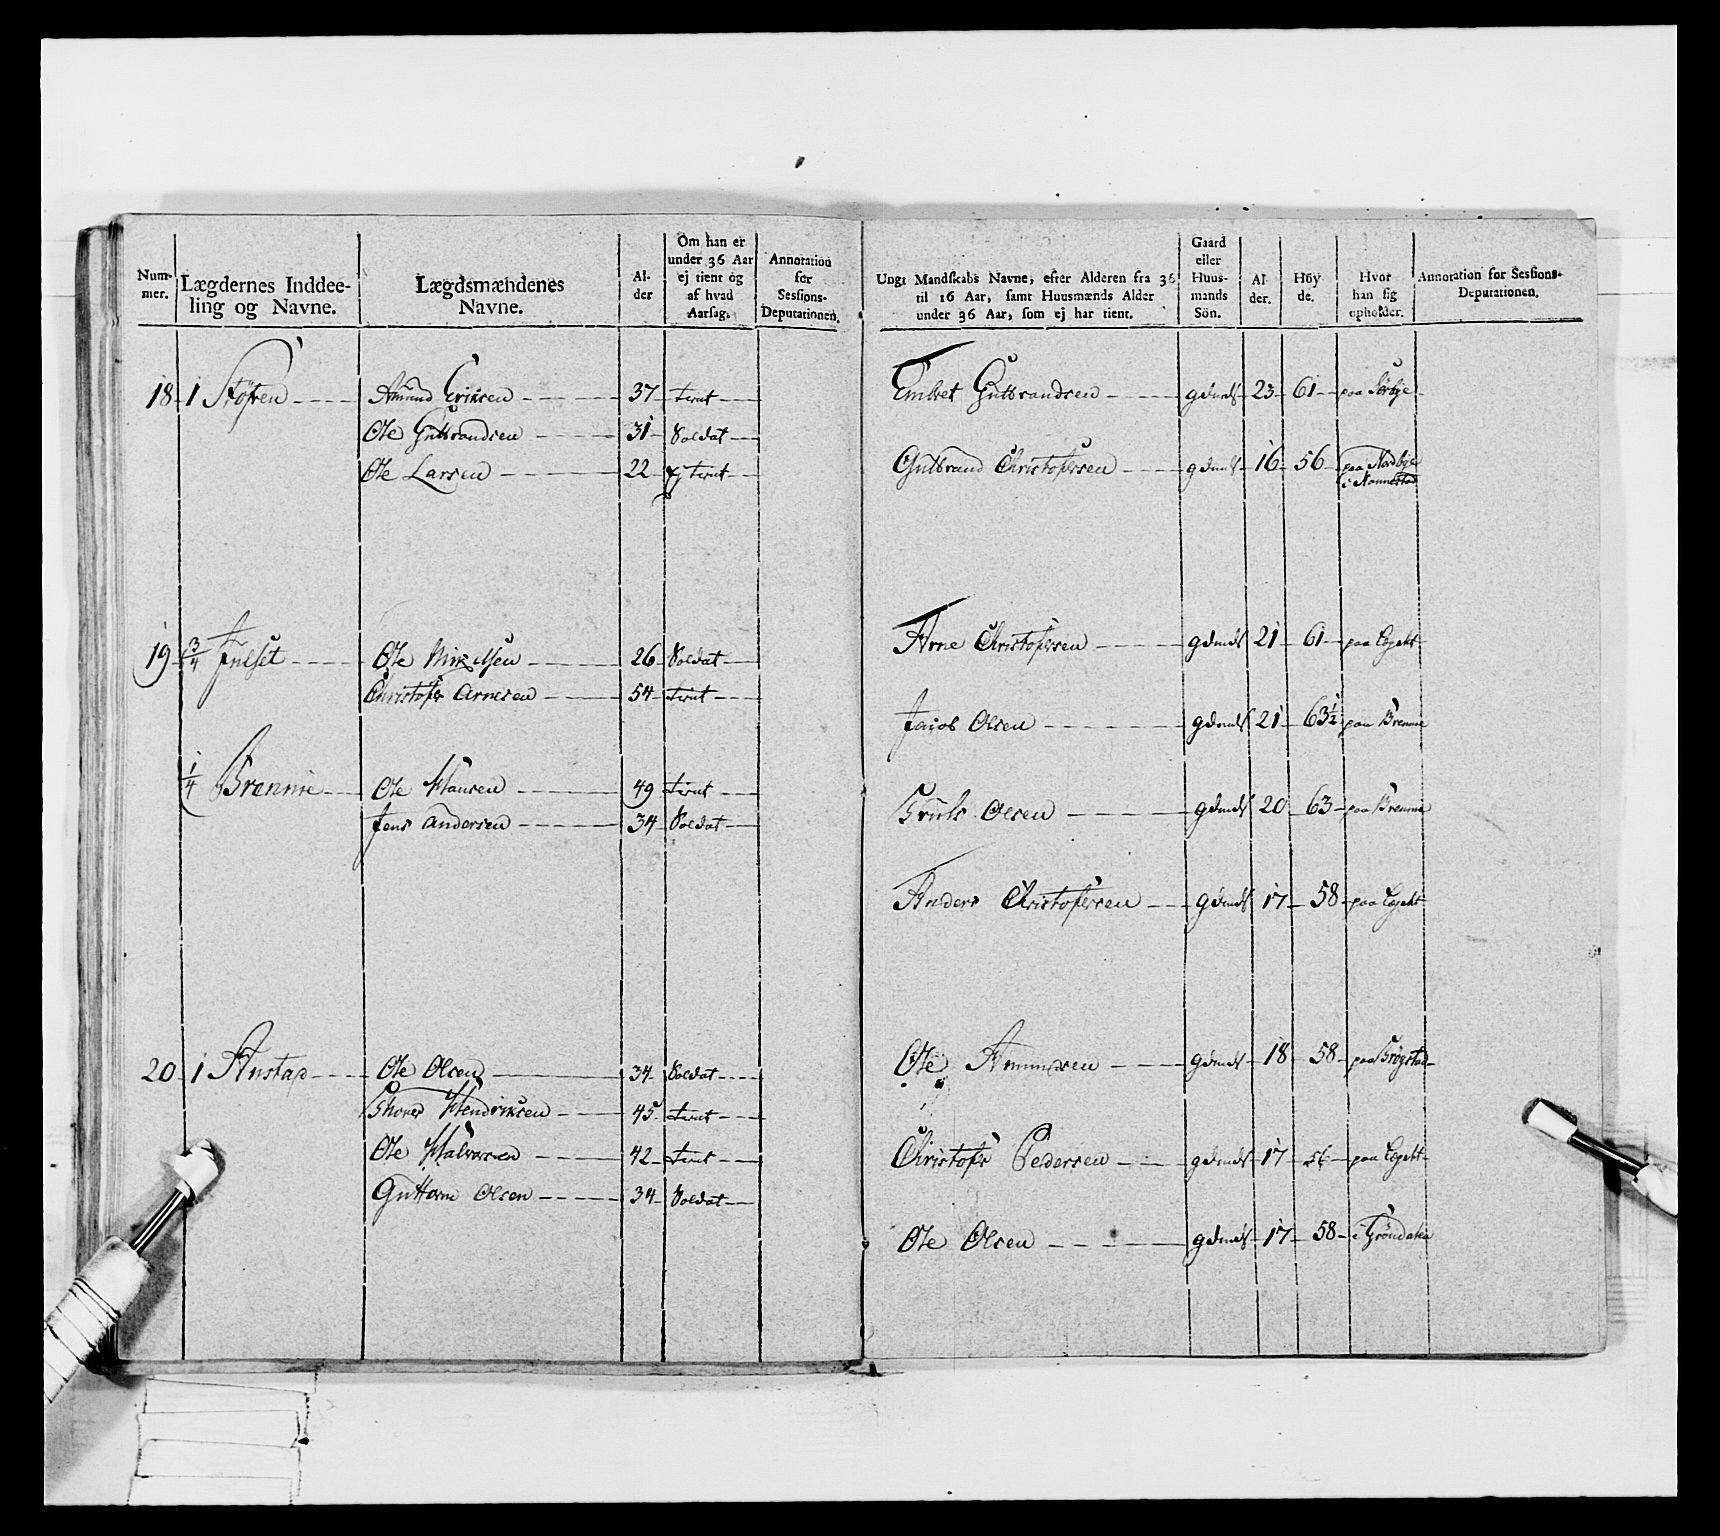 Num-
mer.
Lægdernes Inddee-
ling og Navne.
Lægdsmændenes
Navne.
Al-
der
Om han er
under 36 Aar
ej tient og
af hvad
Aarsag.
Annotation
for
Sessions-
Deputationen.
18 1 Støfren Amund Erichsen 37 tient
Ole Gulbrandsen 31 Soldat
Ole Larsen 22 Ej tient
19 3/4 Ole 26 Soldat
Christofr Arnesen 54 tient
1/4 Brennie Ole Hansen 49 tient
Jens Andersen 34 Soldat
20 1 Ole Olsen 34 Soldat
Hendrichsen 45 tient
Ole Halvorsen 42 tient
Guttorm Olsen 34 Soldat
Ungt Mandskabs Navne, efter Alderen fra 36
til 16 Aar, samt Huusmænds Alder
under 36 Aar, som ej har tient.
Gaard
eller
Huus-
mands
Sön.
Al
der.
Höy
de.
Hvor
han sig
opholder.
Annotation for Sessions-
Deputationen.
Embret Gulbrandsen gdmds 23 61 paa
Gulbrand Christofersen gdmds 16 56 paa Nordbye
i Nannestad
Arne Christofersen gdmds 21 61 paa Lægdet
Jacob Olsen gdmds 21 63½ paa Brennie
Truls Olsen gdmds 20 63 paa Brennie
Anders Christofersen gdmds 17 58 paa Lægdet
Ole Amundsen gdmds 18 58 paa
Christofr Pedersen gdmds 17 56 paa Lægdet
Ole Olsen gdmds 17 58 i